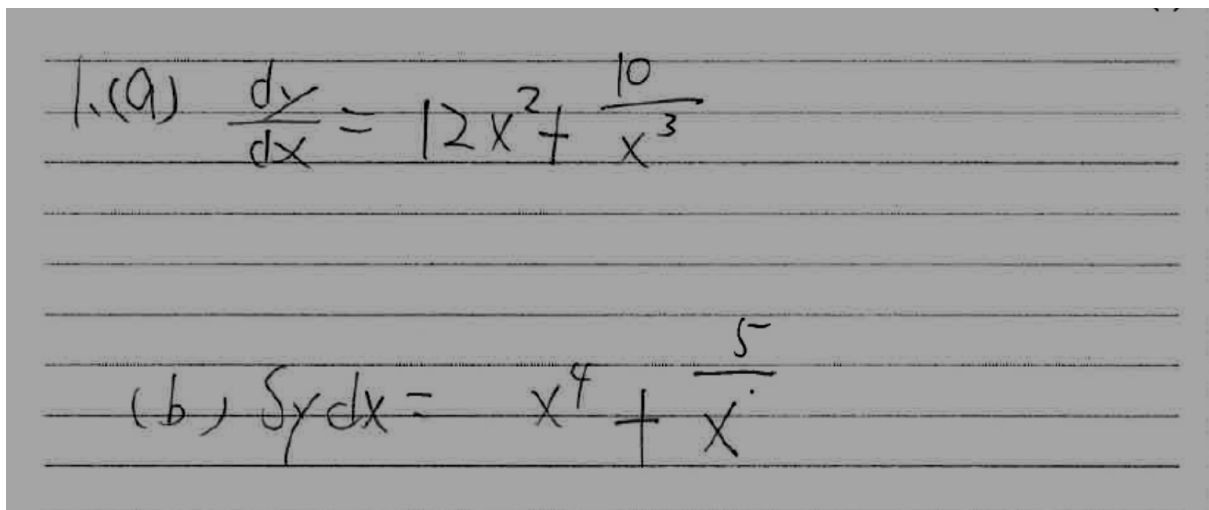 1.(a) dy/dx = 12x² + 10/x³
(b) ∫ydx = x⁴ + 5/x